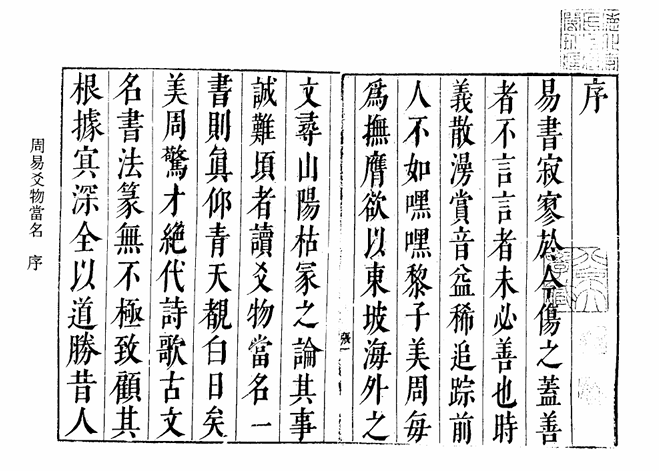 序
易書寂寥於今傷之蓋善
者不言言者未必善也時
義散漫賞音益稀追踪前
人不如嘿嘿黎子美周每
爲撫膺欲以東坡海外之
文尋山陽枯冢之論其事
誠難頃者讀爻物當名一
書則眞仰青天覩白日矣
美周驚才絶代詩歌古文
名書法篆無不極致顧其
根據㝠深全以道勝昔人
周易爻物當名 序